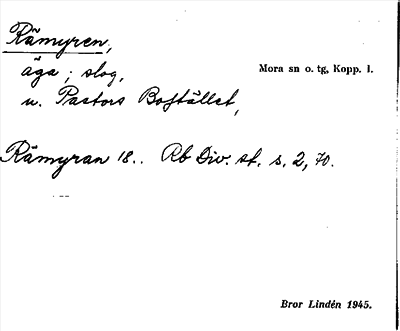 Rämyren,
äga; slog,
Mora sn o. tg, Kopp. l.
u. Pastors Bostället,
Rämyran 18.. Rb Div. st. s. 2, 70.
Bror Lindén 1945.